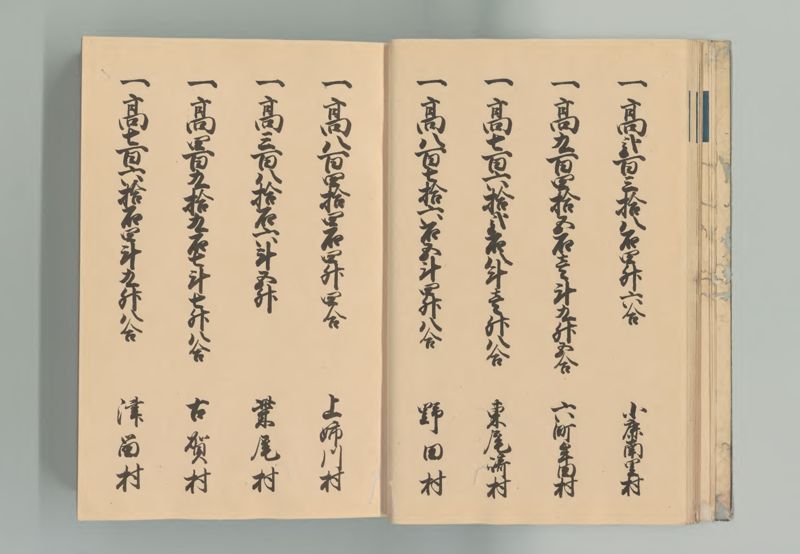 一高弐百三拾八石四升六合　小鹿南里村
一高九百四拾五石壱斗九升五合　六町牟田村
一高七百六拾弐石八斗壱升八合　東尾崎村
一高八百七拾六石五斗四升八合　野田村
一高八百四拾四石四升四合　上姉川村
一高三百八拾石六斗五升　柴尾村
一高四百九拾九石七斗七升八合　古賀村
一高七百六拾石四斗九升八合　津留村